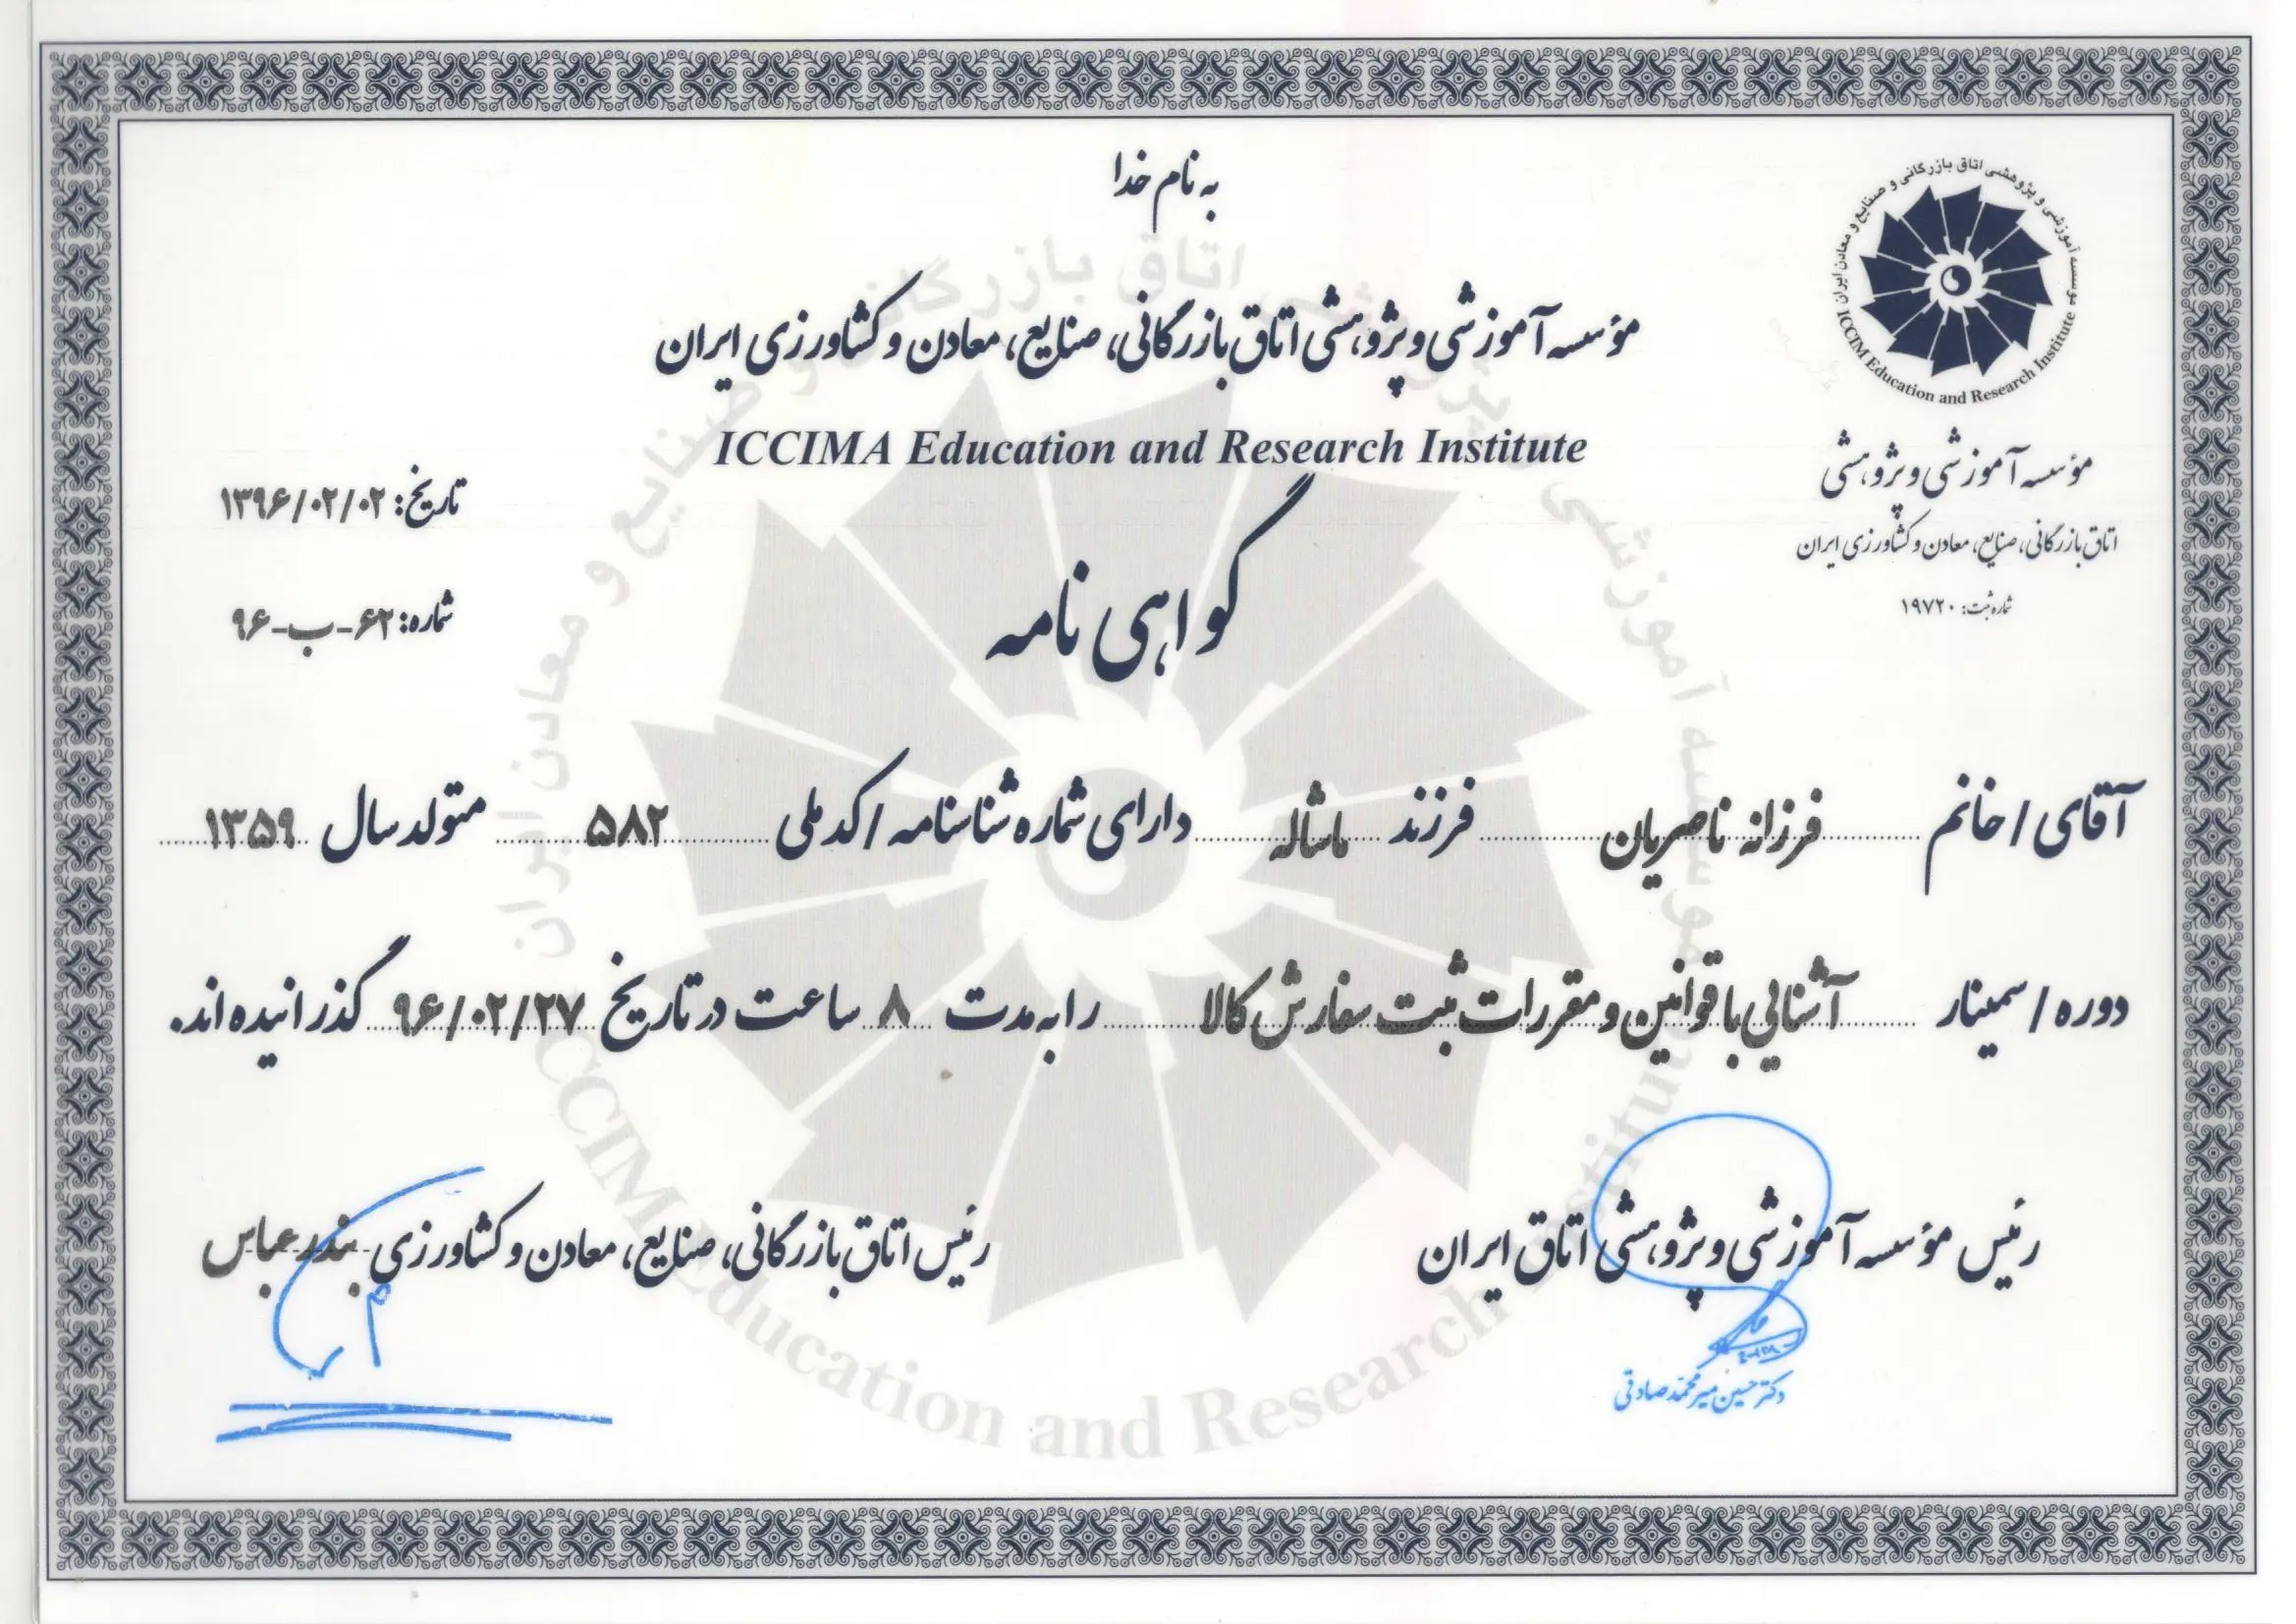 به نام خدا
موسسه آموزشی و پژوهشی اتاق بازرگانی و صنایع و معادن ایران
ICCIM Education and Research Institute
مؤسسه آموزشی و پژوهشی اتاق بازرگانی، صنایع، معادن و کشاورزی ایران
ICCIMA Education and Research Institute
مؤسسه آموزشی و پژوهشی
اتاق بازرگانی، صنایع، معادن و کشاورزی ایران
شماره ثبت: ۱۹۷۲۰
تاریخ: ۱۳۹۶/۰۲/۰۲
شماره: ۶۲-ب-۹۶
گواهی نامه
آقای / خانم فرزانه ناصریان فرزند ماشاله دارای شماره شناسنامه / کد ملی ۵۸۲ متولد سال ۱۳۵۹
دوره / سمینار آشنایی با قوانین و مقررات ثبت سفارش کالا را به مدت ۸ ساعت در تاریخ ۹۶/۰۲/۲۷ گذرانیده اند.
رئیس مؤسسه آموزشی و پژوهشی اتاق ایران
رئیس اتاق بازرگانی، صنایع، معادن و کشاورزی بندرعباس
دکتر حسین میرمحمد صادقی